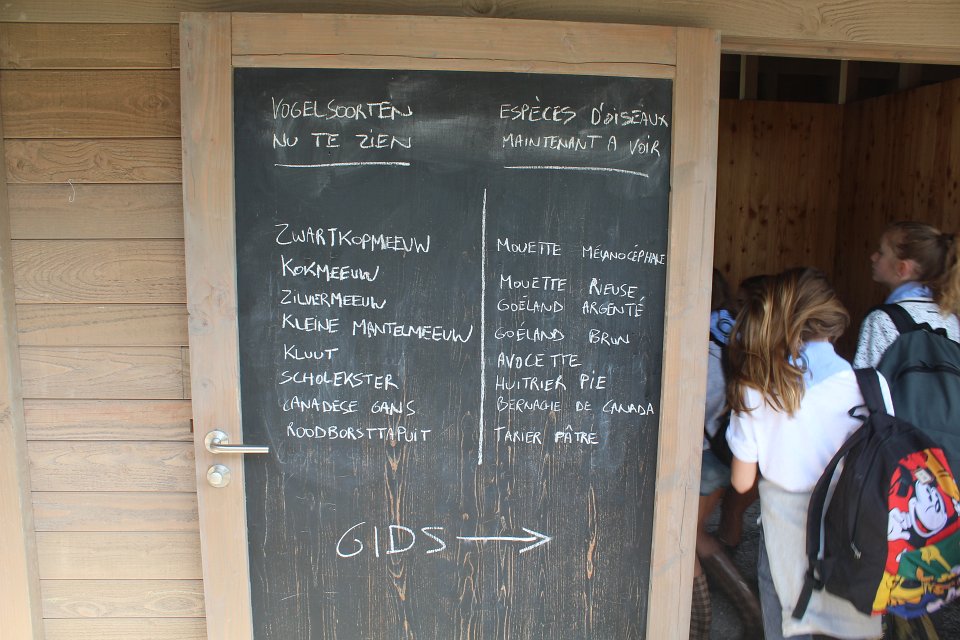 VOGELSOORTEN
NU TE ZIEN
ZWARTKOPMEEUW
KOKMEEUW
ZILVERMEEUW
KLEINE MANTELMEEUW
KLUUT
SCHOLEKSTER
CANADESE GANS
ROODBORSTTAPUIT
ESPÈCES D'OISEAUX
MAINTENANT A VOIR
MOUETTE MÉLANOCÉPHALE
MOUETTE RIEUSE
GOÉLAND ARGENTÉ
GOÉLAND BRUN
AVOCETTE
HUITRIER PIE
BERNACHE DE CANADA
TARIER PÂTRE
GIDS →